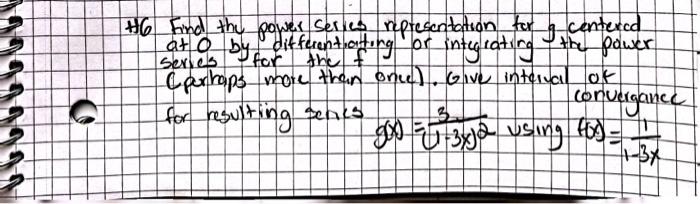 #6 Find the power series representation for g centered
at 0 by differentiating or integrating the power
series for the f
(perhaps more than once). Give interval of
convergance
for resulting series g(x) = 3/(1-3x)² using f(x) = 1/1-3x